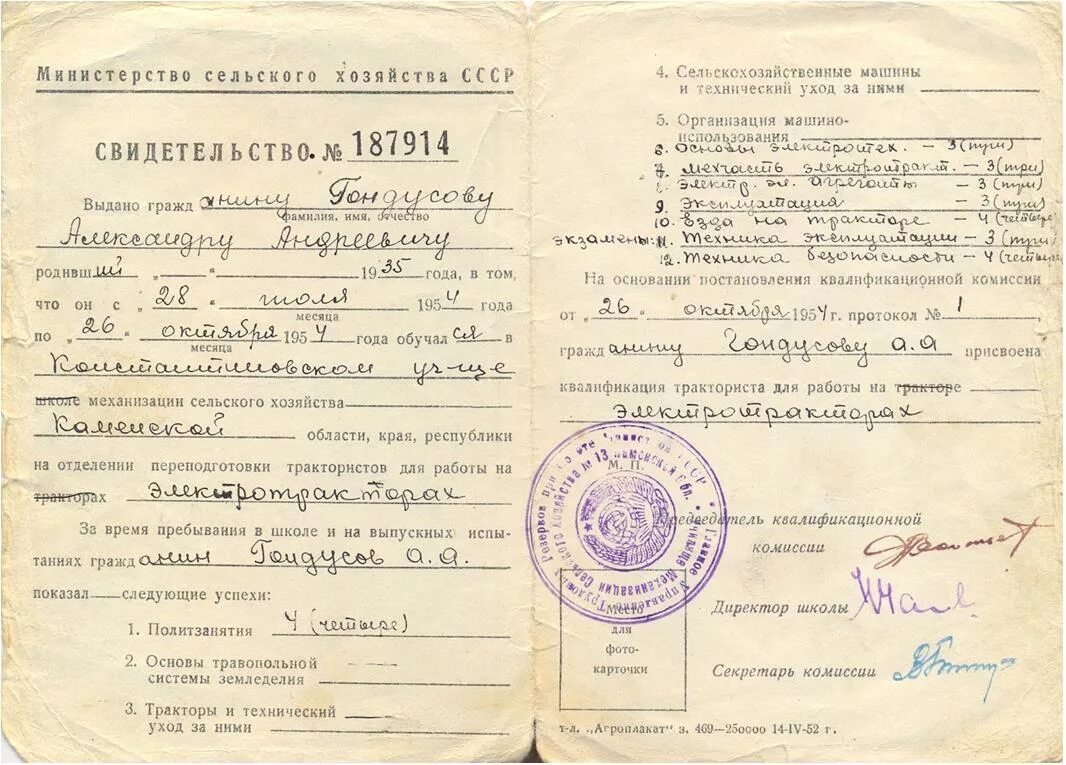 Министерство сельского хозяйства СССР
СВИДЕТЕЛЬСТВО. № 187914
Выдано гражданину Гондусову
фамилия, имя, отчество
Александру Андреевичу
родивший „—“ 1935 года, в том,
что он с „28“ июля 1954 года
месяца
по „26“ октября 1954 года обучался в
месяца
Константиновском уч-ще
школе механизации сельского хозяйства
Каменской области, края, республики
на отделении переподготовки трактористов для работы на
тракторах электротракторах
За время пребывания в школе и на выпускных испы-
таниях гражданин Гондусов А. А.
показал — следующие успехи:
1. Политзанятия 4 (четыре)
2. Основы травопольной
системы земледелия
3. Тракторы и технический
уход за ними
4. Сельскохозяйственные машины
и технический уход за ними
5. Организация машино-
использования
6. Основы электротех. — 3 (три)
7. Мехчасть электротракт. — 3 (три)
8. Электр. эл. агрегаты — 3 (три)
9. Эксплуатация — 3 (три)
10. Езда на тракторе — 4 (четыре)
экзамены: 11. Техника эксплуатации — 3 (три)
12. Техника безопасности — 4 (четыре)
На основании постановления квалификационной комиссии
от „26“ октября 1954 г. протокол № 1,
гражданину Гондусову А. А присвоена
квалификация тракториста для работы на тракторе
электротракторах
М. П.
Главное Управление Трудовых Резервов при Совете Министров СССР
Училище Механизации Сельского хозяйства № 13 Каменской Обл.
Председатель квалификационной
комиссии
Директор школы
Секретарь комиссии
Место
для
фото-
карточки
т-л. „Агроплакат“ з. 469—250000 14-IV-52 г.